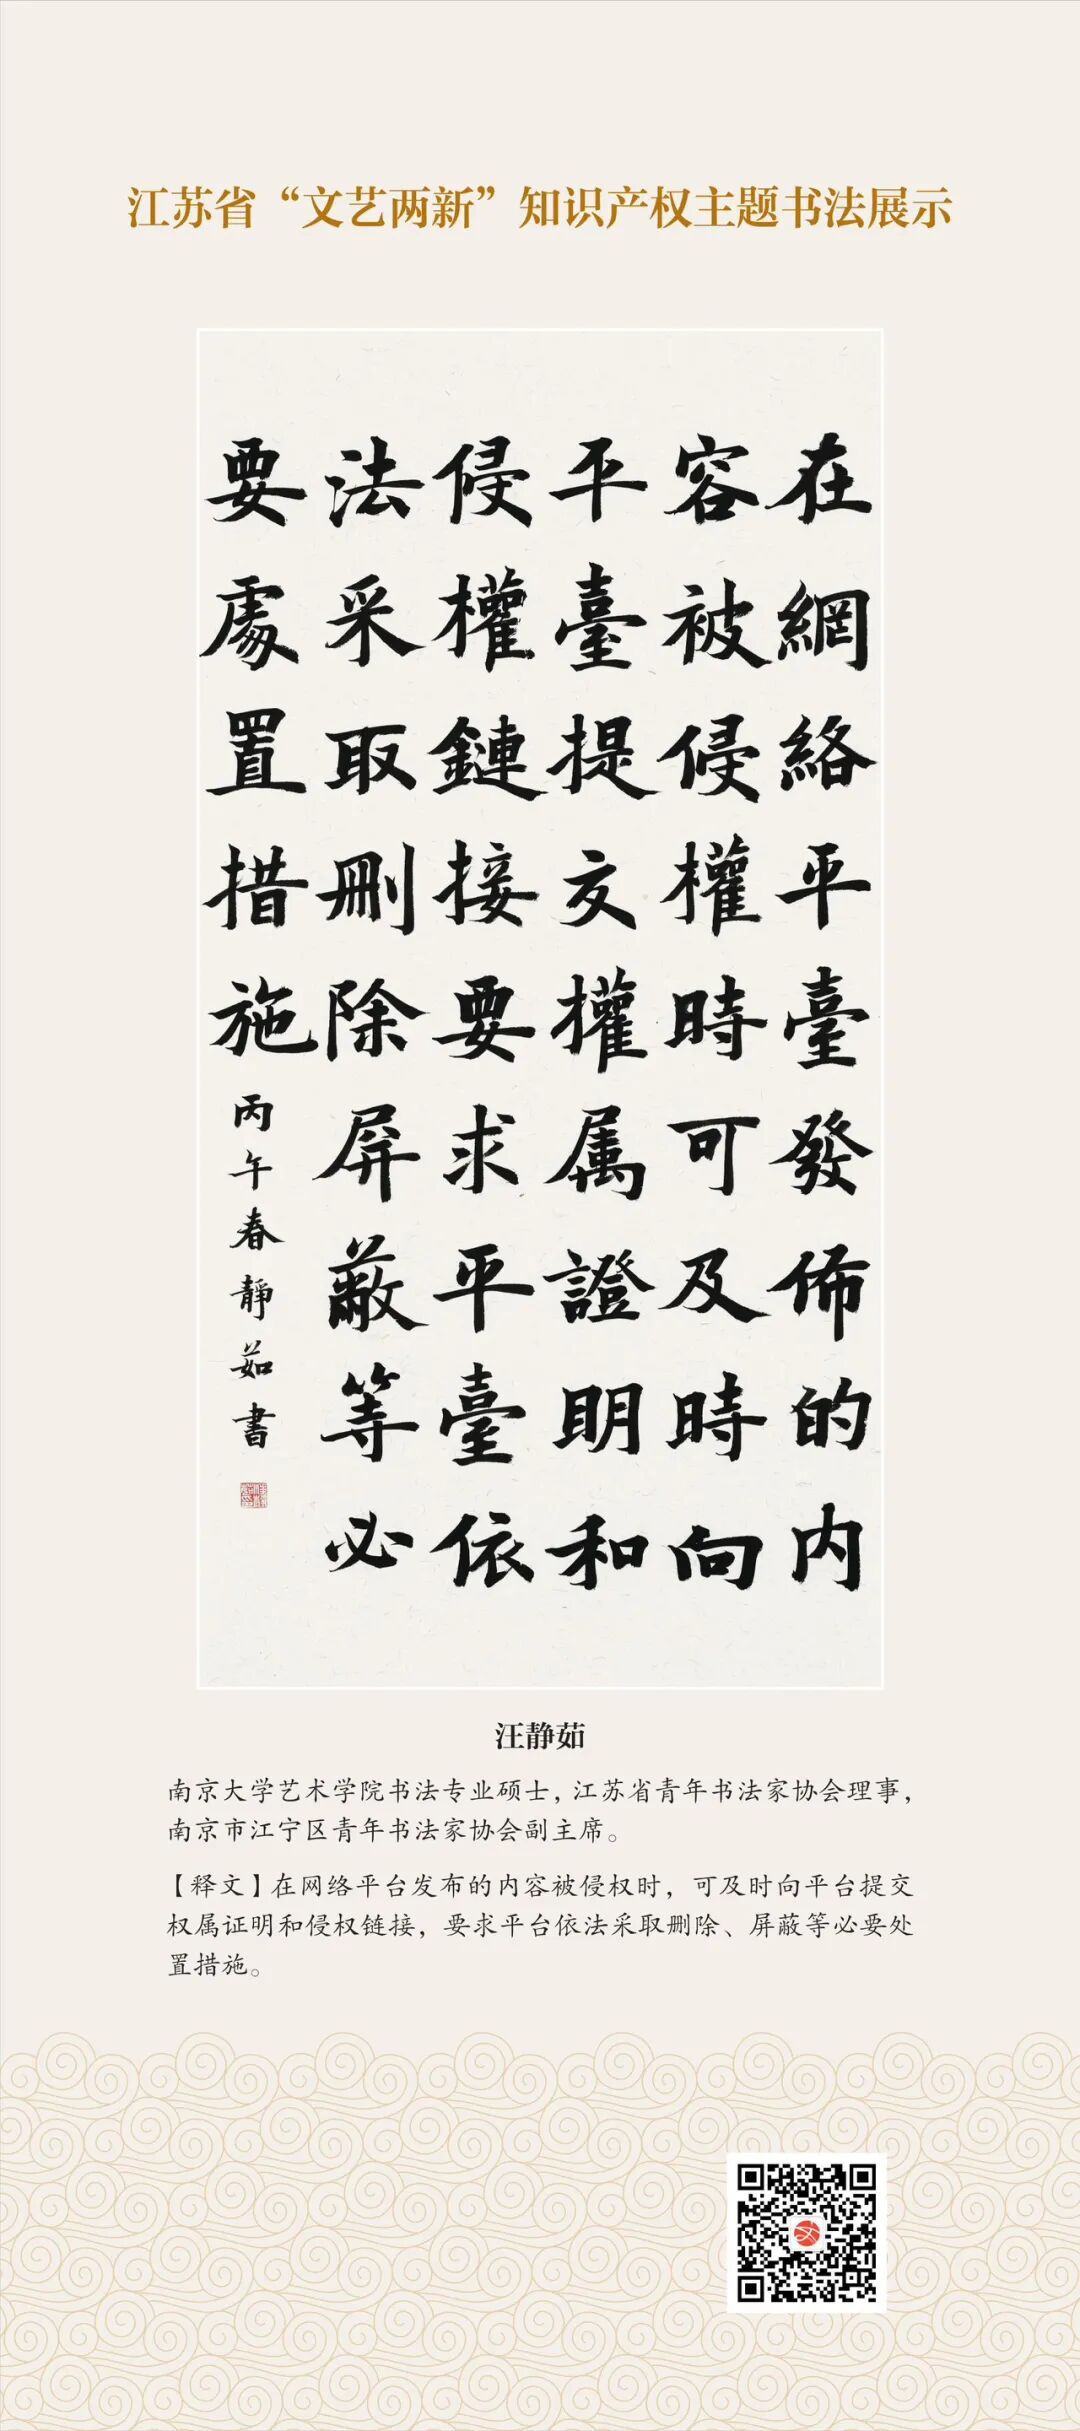 江苏省“文艺两新”知识产权主题书法展示
在網絡平臺發佈的内
容被侵權時可及時向
平臺提交權属證明和
侵權鏈接要求平臺依
法采取刪除屏蔽等必
要處置措施
丙午春靜茹書
汪静茹
南京大学艺术学院书法专业硕士，江苏省青年书法家协会理事，
南京市江宁区青年书法家协会副主席。
【释文】在网络平台发布的内容被侵权时，可及时向平台提交
权属证明和侵权链接，要求平台依法采取删除、屏蔽等必要处
置措施。